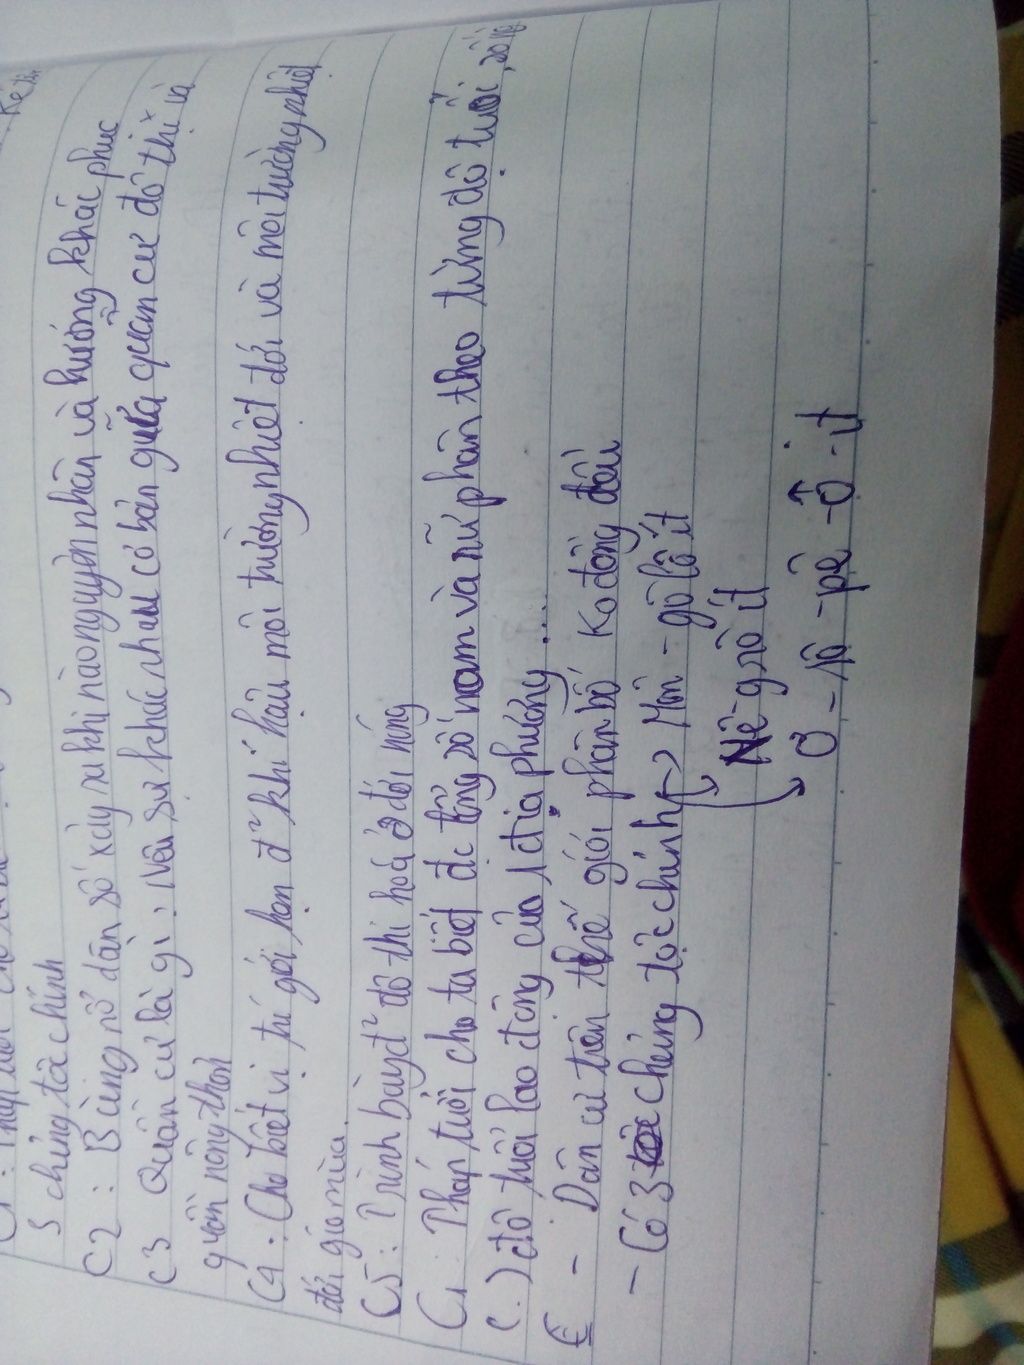 3 chủng tộc chính
C2: Bùng nổ dân số xảy ra khi nào nguyên nhân và hướng khắc phục
C3 Quần cư là gì? Nêu sự khác nhau cơ bản giữa quần cư đô thị và
quần nông thôn
C4: Cho biết vị trí giới hạn đ² khí hậu môi trường nhiệt đới và môi trường nhiệt
đới gió mùa.
C5: Trình bày đ² đô thị hoá ở đới nóng
C1: Tháp tuổi cho ta biết đc tổng số nam và nữ phân theo từng độ tuổi, số
độ tuổi lao động của 1 địa phương....
- Dân cư trên thế giới phân bố ko đồng đều
- Có 3 chủng tộc chính Môn-gô-lô ít
Nê-grô ít
Ơ-rô-pê-ô-ít